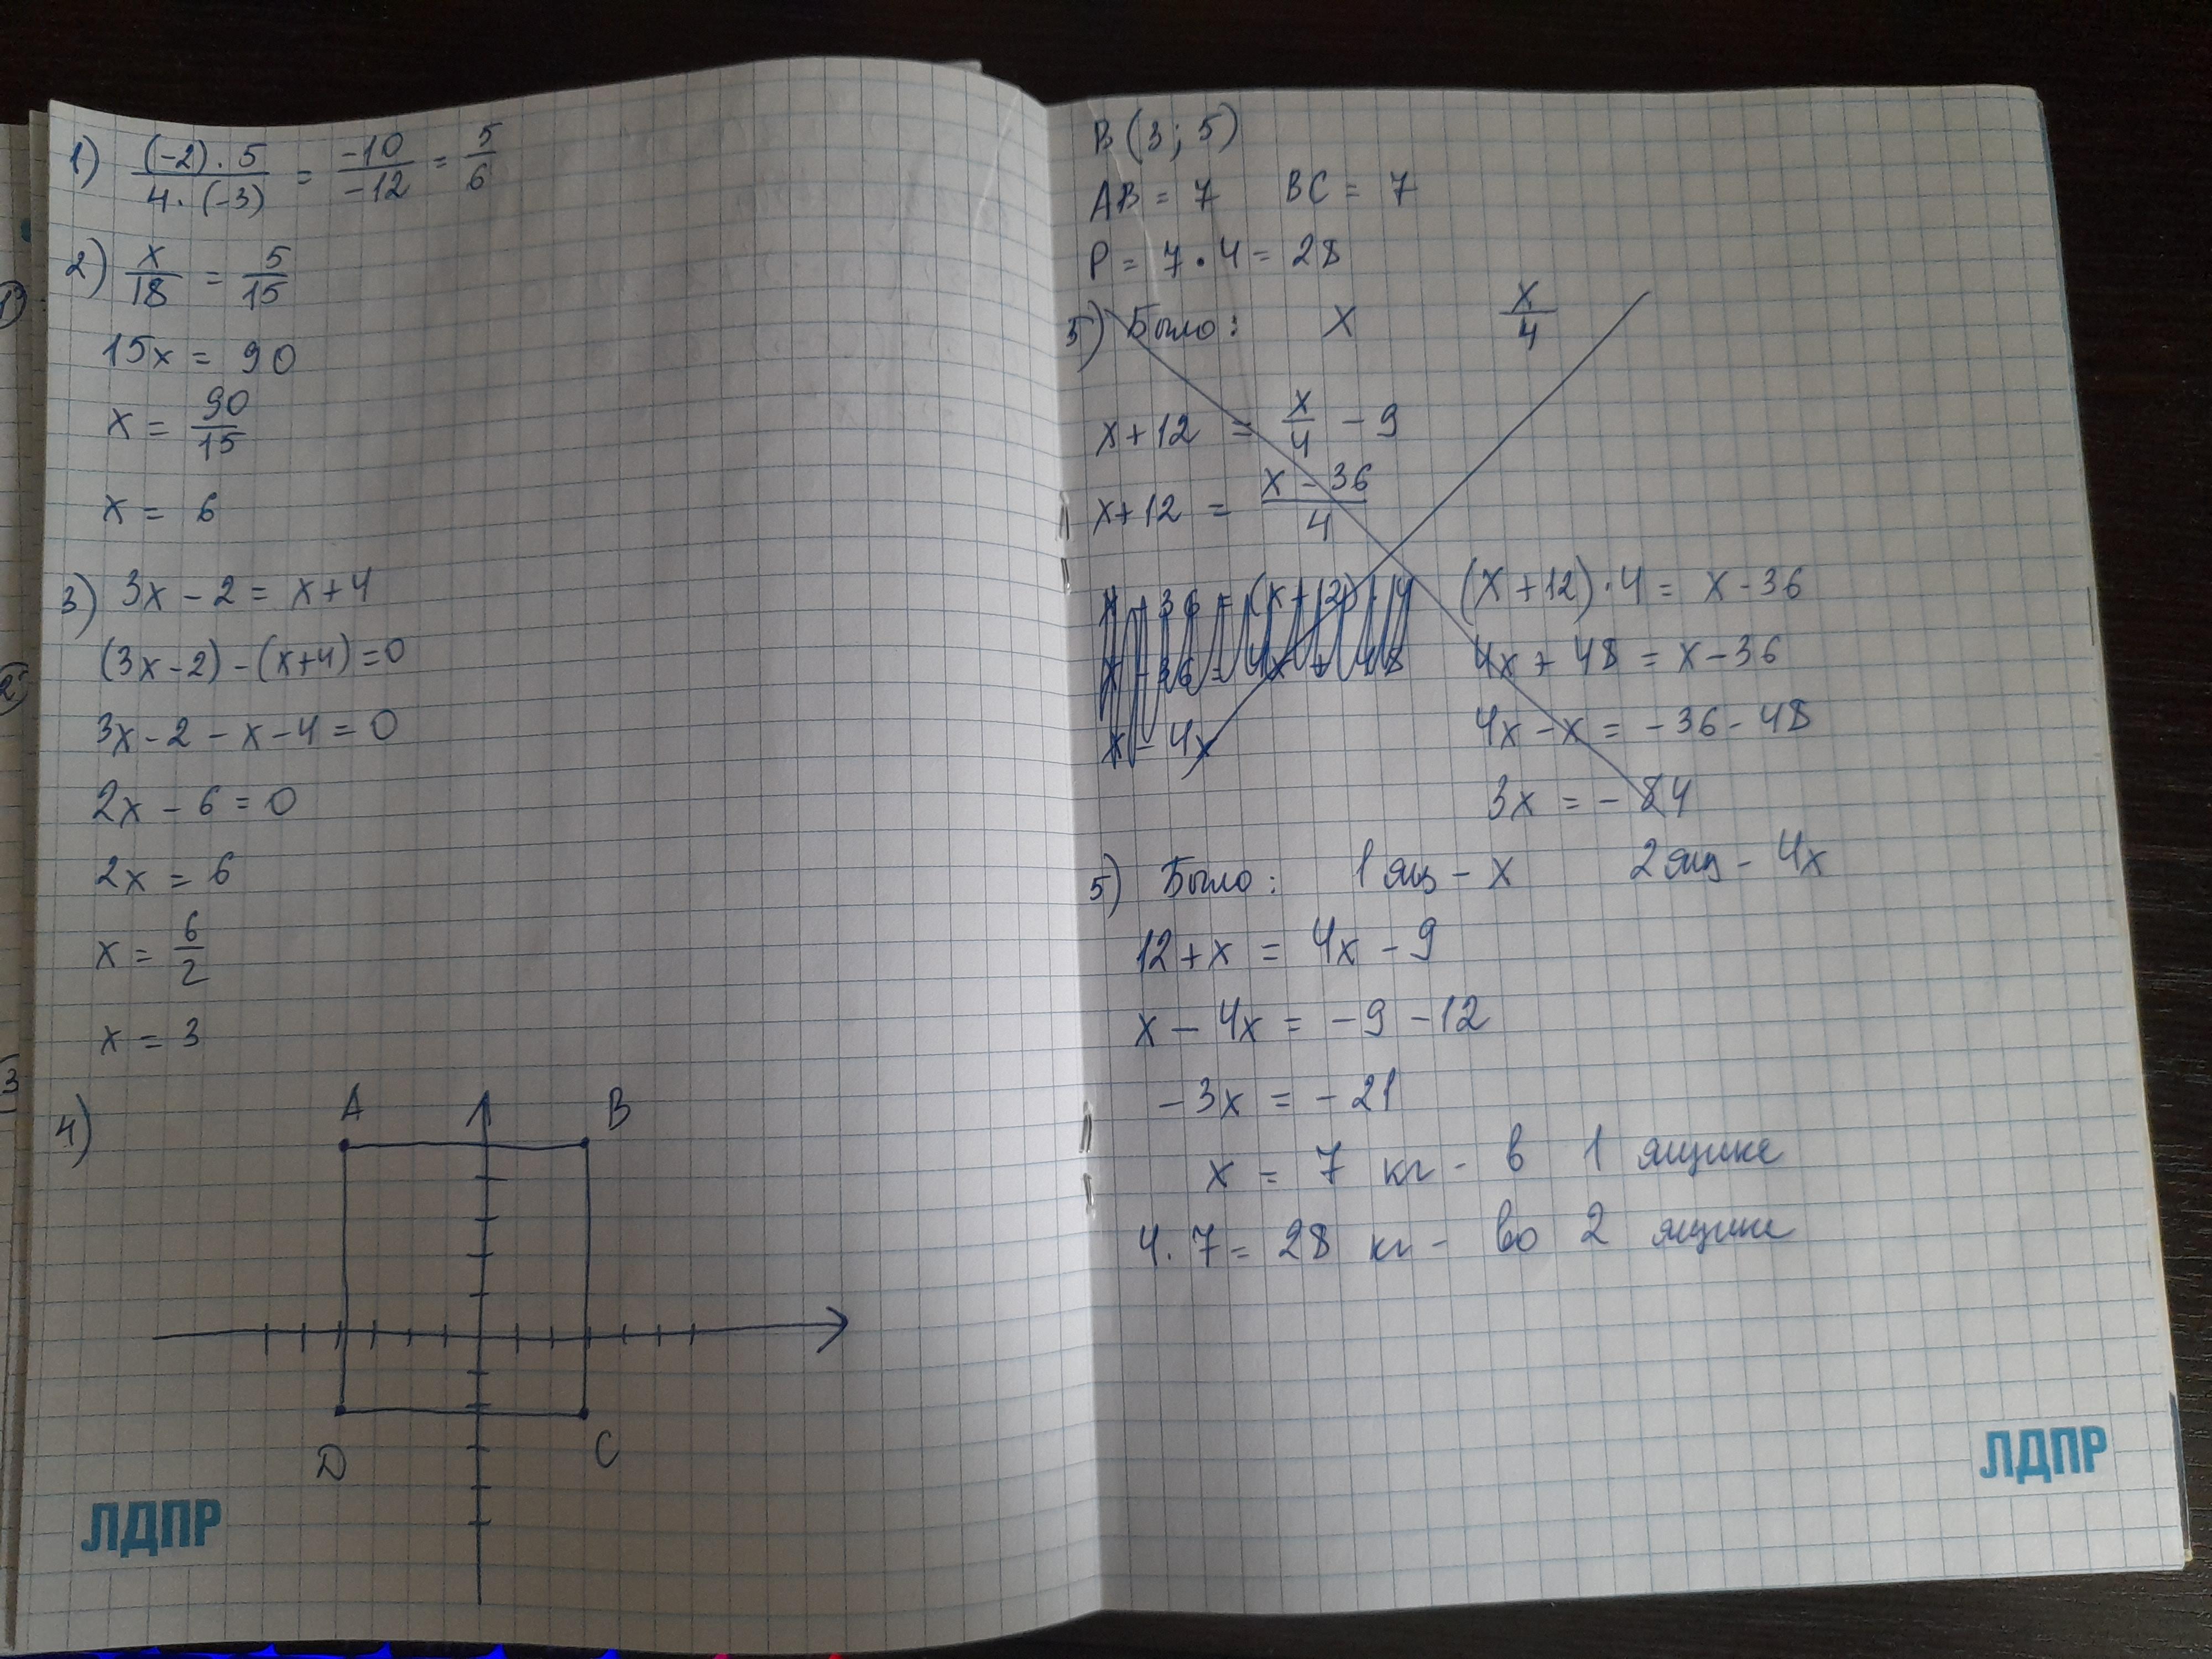 1) (-2)·5 / 4·(-3) = -10/-12 = 5/6
2) x/18 = 5/15
15x = 90
x = 90/15
x = 6
3) 3x - 2 = x + 4
(3x - 2) - (x + 4) = 0
3x - 2 - x - 4 = 0
2x - 6 = 0
2x = 6
x = 6/2
x = 3
4)
A B
D C
ЛДПР
B (3; 5)
AB = 7 BC = 7
P = 7·4 = 28
5) Было: x x/4
x + 12 = x/4 - 9
x + 12 = x - 36 / 4
(x + 12)·4 = x - 36
4x + 48 = x - 36
x - 4x
4x - x = -36 - 48
3x = -84
5) Было: 1 ящ - x 2 ящ - 4x
12 + x = 4x - 9
x - 4x = -9 - 12
-3x = -21
x = 7 кг - в 1 ящике
4·7 = 28 кг - во 2 ящике
ЛДПР